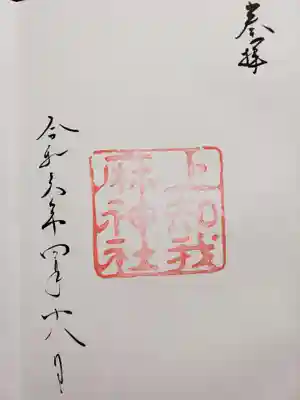 奉拝
上知我
麻神社
令和六年四月十八日